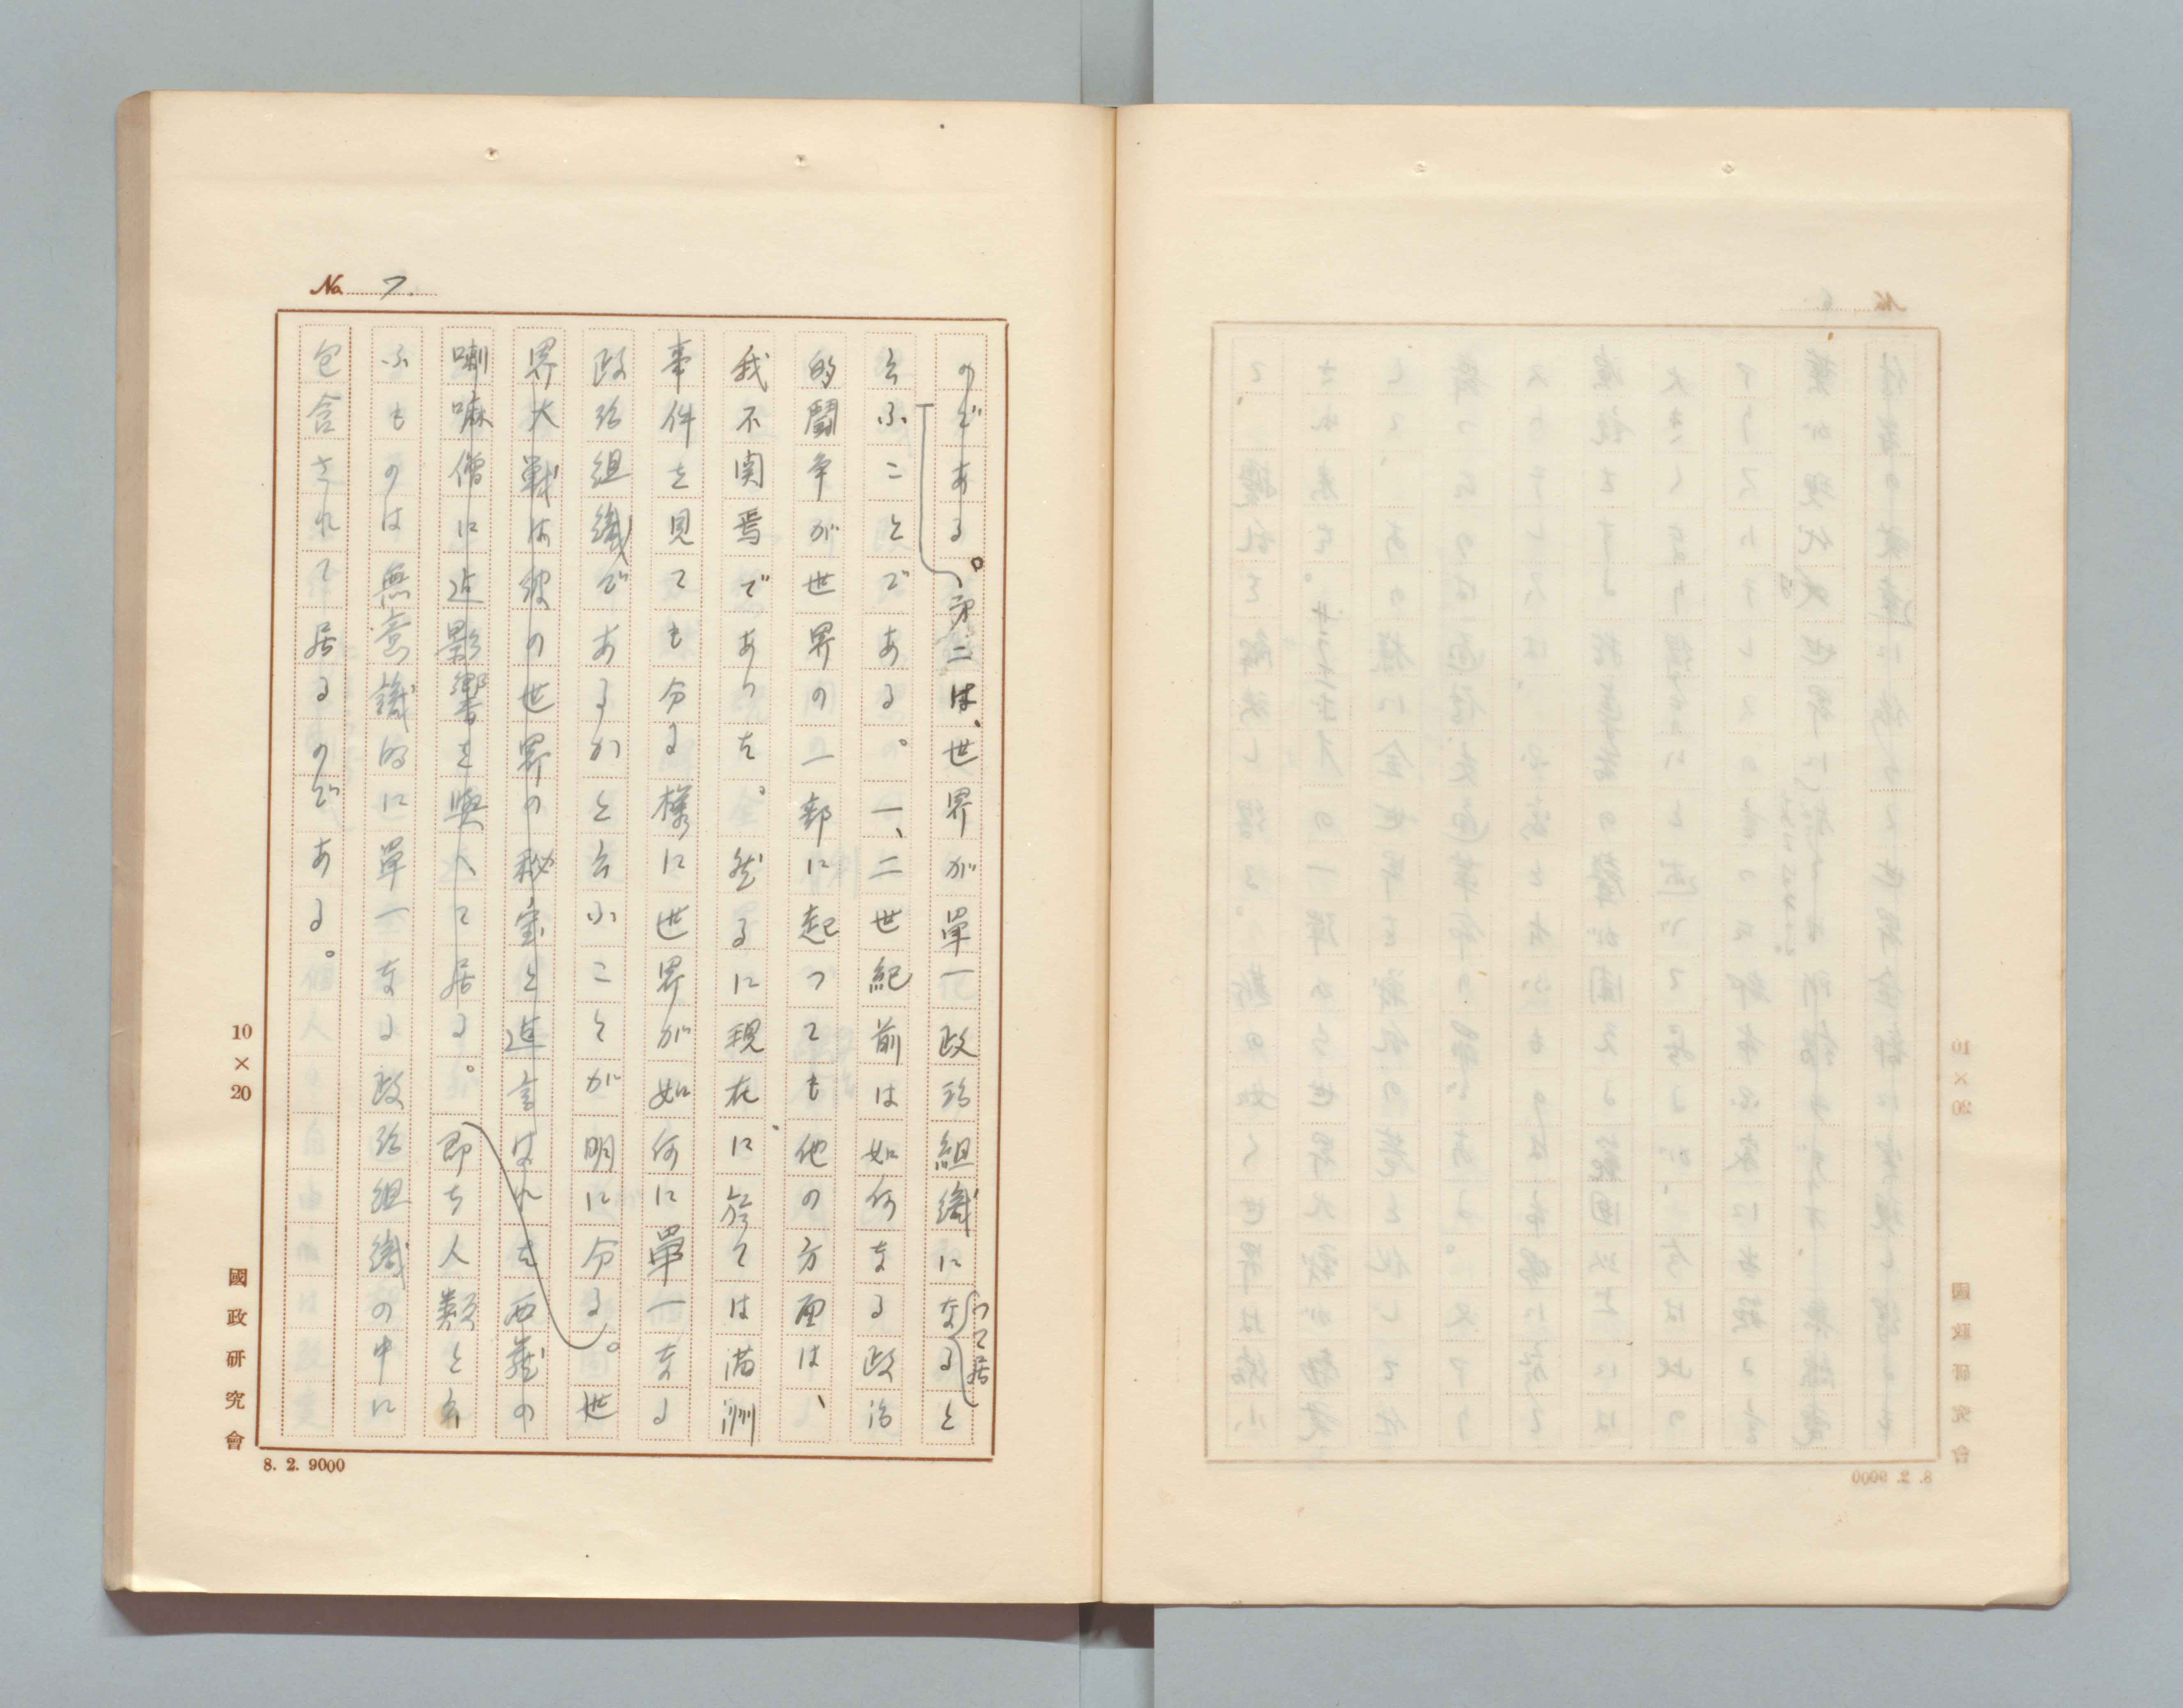 No. 7.
のである。第二は、世界が單一政治組織になると
つて居
云ふことである。一、二世紀前は如何なる政治
的鬪争が世界の一部に起つても他の方面は、
我不関焉であつた。然るに現在に於ては満洲
事件を見ても分る様に世界が如何に單一なる
政治組織であるかと云ふことが明に分る。世
界大戦は彼の世界の秘密と迄言はれた西蔵の
喇嘛僧に迄影響を與へて居る。即ち人類と云
ふものは無意識的に單一なる政治組織の中に
包含されて居るのである。
10×20
國政研究會
8. 2. 9000